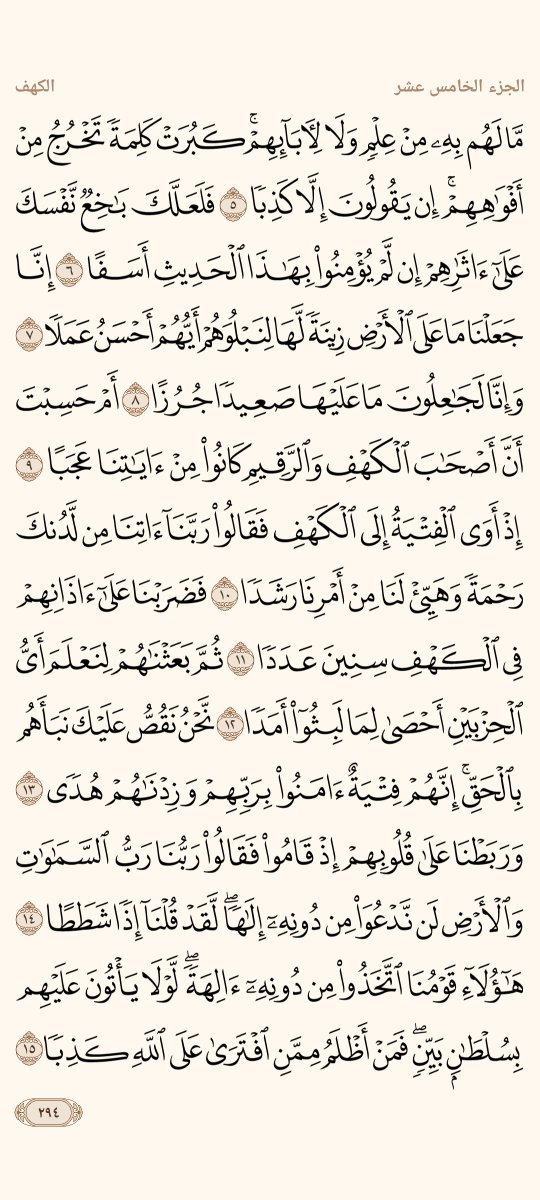 الجزء الخامس عشر
الكهف
مَّا لَهُم بِهِۦ مِنْ عِلْمٍ وَلَا لِأٓبَآئِهِمْ ۚ كَبُرَتْ كَلِمَةً تَخْرُجُ مِنْ
أَفْوَٰهِهِمْ ۚ إِن يَقُولُونَ إِلَّا كَذِبًا ٥ فَلَعَلَّكَ بَٰخِعٌ نَّفْسَكَ
عَلَىٰٓ ءَاثَٰرِهِمْ إِن لَّمْ يُؤْمِنُوا۟ بِهَٰذَا ٱلْحَدِيثِ أَسَفًا ٦ إِنَّا
جَعَلْنَا مَا عَلَى ٱلْأَرْضِ زِينَةً لَّهَا لِنَبْلُوَهُمْ أَيُّهُمْ أَحْسَنُ عَمَلًا ٧
وَإِنَّا لَجَٰعِلُونَ مَا عَلَيْهَا صَعِيدًا جُرُزًا ٨ أَمْ حَسِبْتَ
أَنَّ أَصْحَٰبَ ٱلْكَهْفِ وَٱلرَّقِيمِ كَانُوا۟ مِنْ ءَايَٰتِنَا عَجَبًا ٩
إِذْ أَوَى ٱلْفِتْيَةُ إِلَى ٱلْكَهْفِ فَقَالُوا۟ رَبَّنَآ ءَاتِنَا مِن لَّدُنكَ
رَحْمَةً وَهَيِّئْ لَنَا مِنْ أَمْرِنَا رَشَدًا ١٠ فَضَرَبْنَا عَلَىٰٓ ءَاذَانِهِمْ
فِى ٱلْكَهْفِ سِنِينَ عَدَدًا ١١ ثُمَّ بَعَثْنَٰهُمْ لِنَعْلَمَ أَىُّ
ٱلْحِزْبَيْنِ أَحْصَىٰ لِمَا لَبِثُوٓا۟ أَمَدًا ١٢ نَّحْنُ نَقُصُّ عَلَيْكَ نَبَأَهُم
بِٱلْحَقِّ ۚ إِنَّهُمْ فِتْيَةٌ ءَامَنُوا۟ بِرَبِّهِمْ وَزِدْنَٰهُمْ هُدًى ١٣
وَرَبَطْنَا عَلَىٰ قُلُوبِهِمْ إِذْ قَامُوا۟ فَقَالُوا۟ رَبُّنَا رَبُّ ٱلسَّمَٰوَٰتِ
وَٱلْأَرْضِ لَن نَّدْعُوَا۟ مِن دُونِهِۦٓ إِلَٰهًا ۖ لَّقَدْ قُلْنَآ إِذًا شَطَطًا ١٤
هَٰٓؤُلَآءِ قَوْمُنَا ٱتَّخَذُوا۟ مِن دُونِهِۦٓ ءَالِهَةً ۖ لَّوْلَا يَأْتُونَ عَلَيْهِم
بِسُلْطَٰنٍۭ بَيِّنٍ ۖ فَمَنْ أَظْلَمُ مِمَّنِ ٱفْتَرَىٰ عَلَى ٱللَّهِ كَذِبًا ١٥
٢٩٤